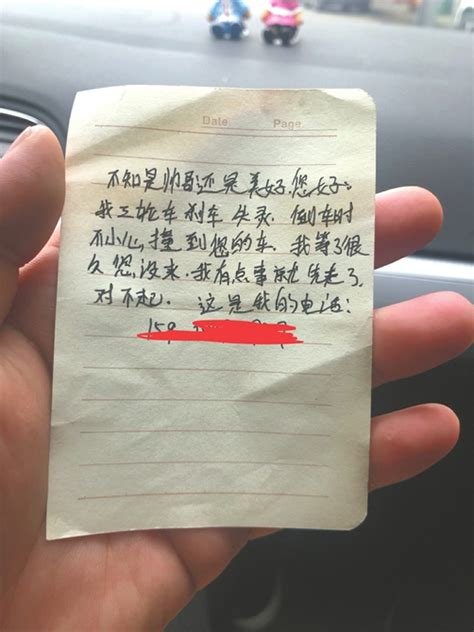 Date.
Page
不知是帅哥还是美好.您好:
我三轮车刹车失灵.倒车时
不小心,撞到您的车.我等了很
久您没来.我有点事就先走了,
对不起.这是我的电话:
159